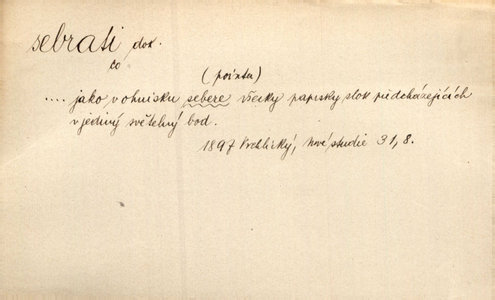 sebrati dok.
co
(pointa)
.... jako v ohnisku sebere všecky paprsky slok předcházejících
v jediný světelný bod.
1897 Vrchlický, Nové studie 31,8.